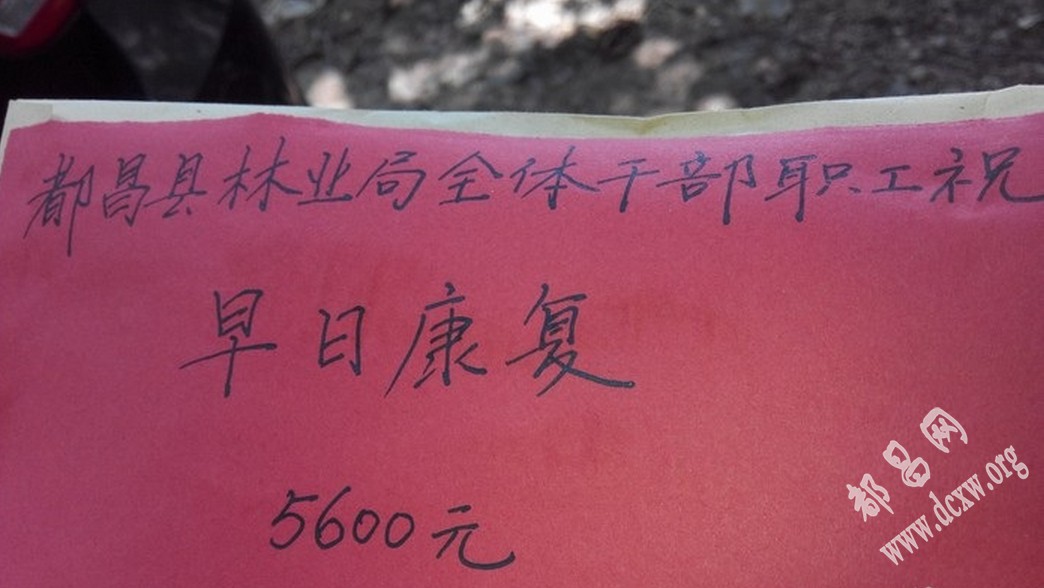 都昌县林业局全体干部职工祝
早日康复
5600元
都昌网
www.dcxw.org